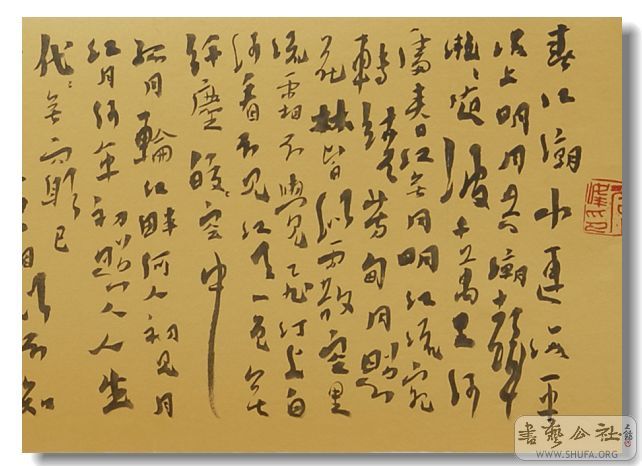 春江潮水連海平
海上明月共潮生
灧灧隨波千万里何
處春江無月明江流宛
轉繞芳甸月照
花林皆似霰空里
流霜不覺飛汀上白
沙看不見江天一色無
纖塵皎皎空中
孤月輪江畔何人初見月
江月何年初照人人生
代代無窮已
不知
書藝公社
WWW.SHUFA.ORG